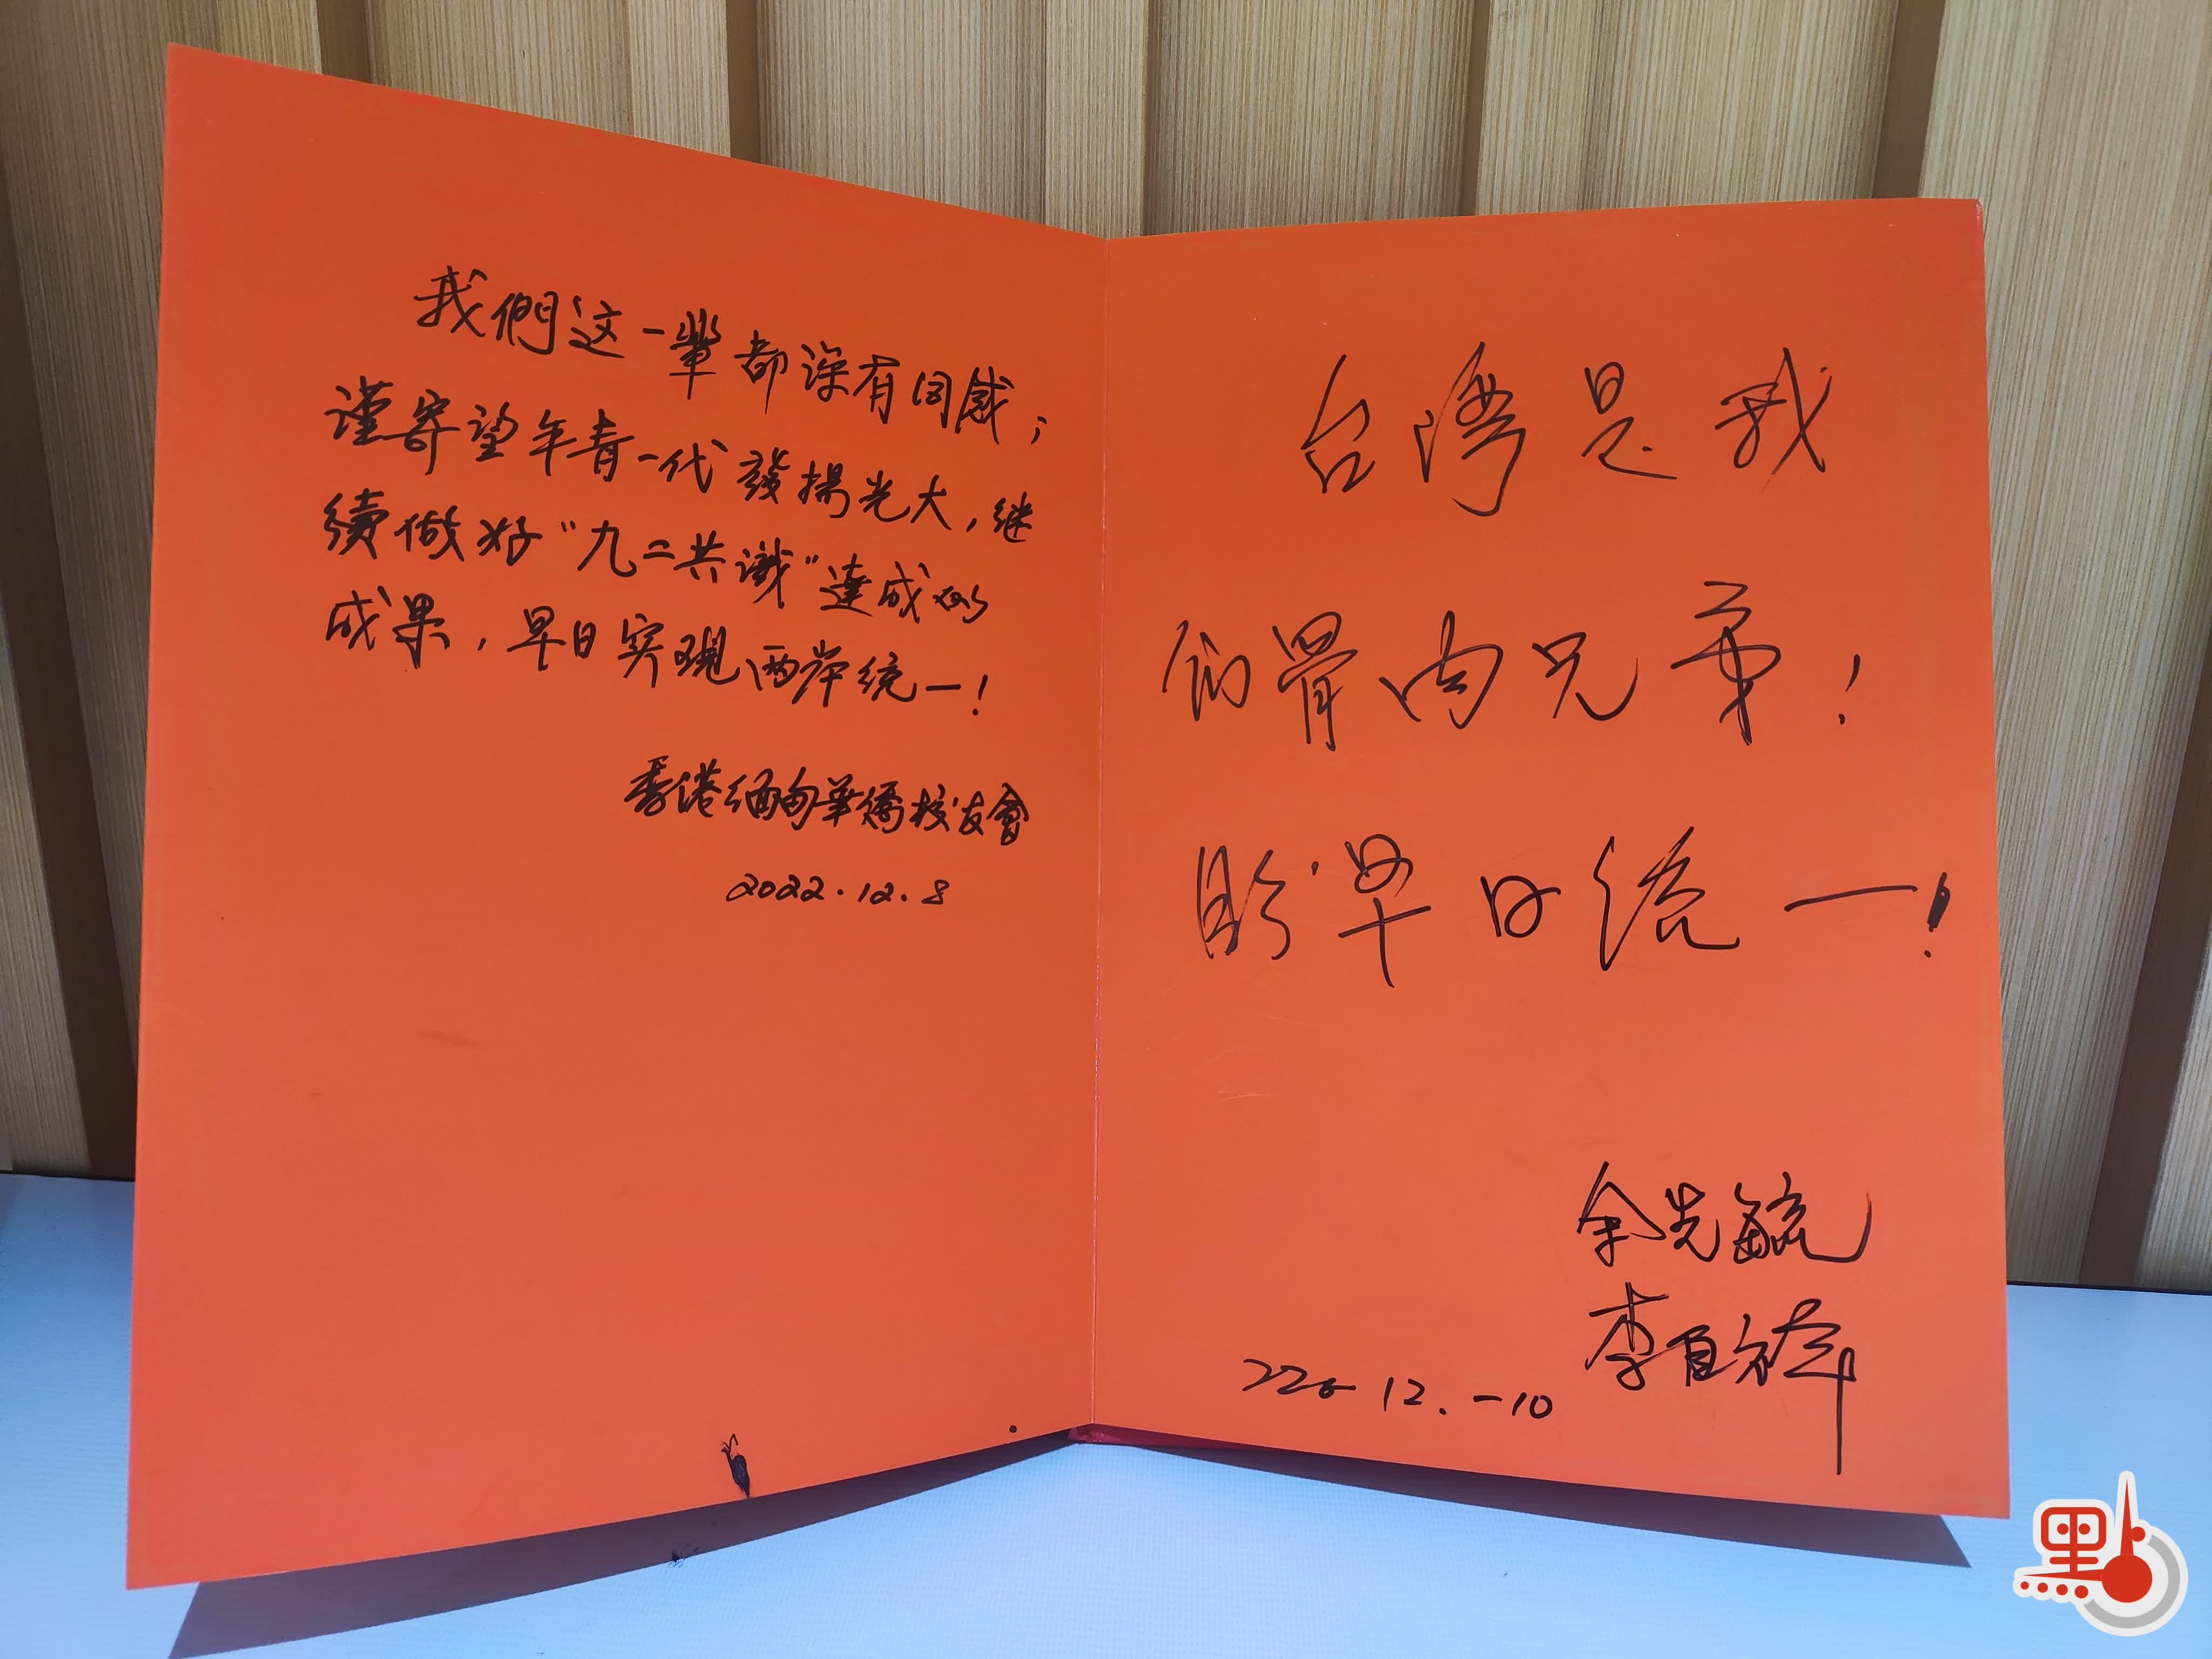 我們这一輩都深有同感；
謹寄望年青一代發揚光大，继
續做好"九二共識"達成的
成果，早日实現两岸统一！
香港缅甸華僑校友會
2022.12.8
台湾是我
们骨肉兄弟！
盼早日统一！
余先毓
李直祥
12.-10
點